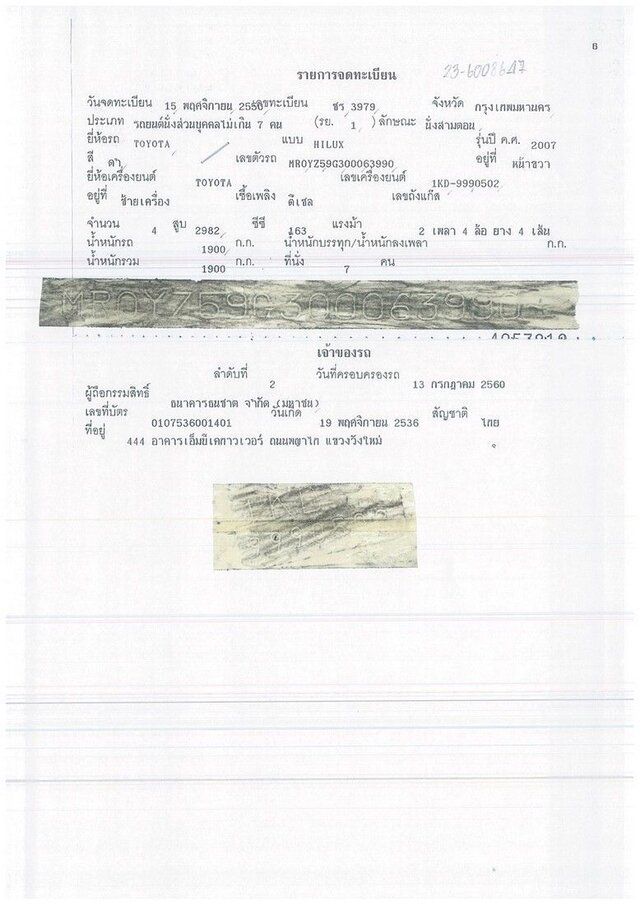 6
23-6008647
รายการจดทะเบียน
วันจดทะเบียน 15 พฤศจิกายน 2550 เลขทะเบียน ชร 3979 จังหวัด กรุงเทพมหานคร
ประเภท รถยนต์นั่งส่วนบุคคลไม่เกิน 7 คน (รย. 1 ) ลักษณะ นั่งสามตอน
ยี่ห้อรถ TOYOTA แบบ HILUX รุ่นปี ค.ศ. 2007
สี เทา เลขตัวรถ MROYZ59G300063990 อยู่ที่ หน้าขวา
ยี่ห้อเครื่องยนต์ TOYOTA เลขเครื่องยนต์ 1KD-9990502
อยู่ที่ ซ้ายเครื่อง เชื้อเพลิง ดีเซล เลขถังแก๊ส
จำนวน 4 สูบ 2982 ซีซี 163 แรงม้า 2 เพลา 4 ล้อ ยาง 4 เส้น
น้ำหนักรถ 1900 ก.ก. น้ำหนักบรรทุก/น้ำหนักลงเพลา ก.ก.
น้ำหนักรวม 1900 ก.ก. ที่นั่ง 7 คน
MROYZ59G300063990
เจ้าของรถ
ลำดับที่ 2 วันที่ครอบครองรถ 13 กรกฎาคม 2560
ผู้ถือกรรมสิทธิ์ ธนาคารธนชาต จำกัด (มหาชน)
เลขที่บัตร 0107536001401 วันเกิด 19 พฤศจิกายน 2536 สัญชาติ ไทย
ที่อยู่ 444 อาคารเอ็มบีเคทาวเวอร์ ถนนพญาไท แขวงวังใหม่